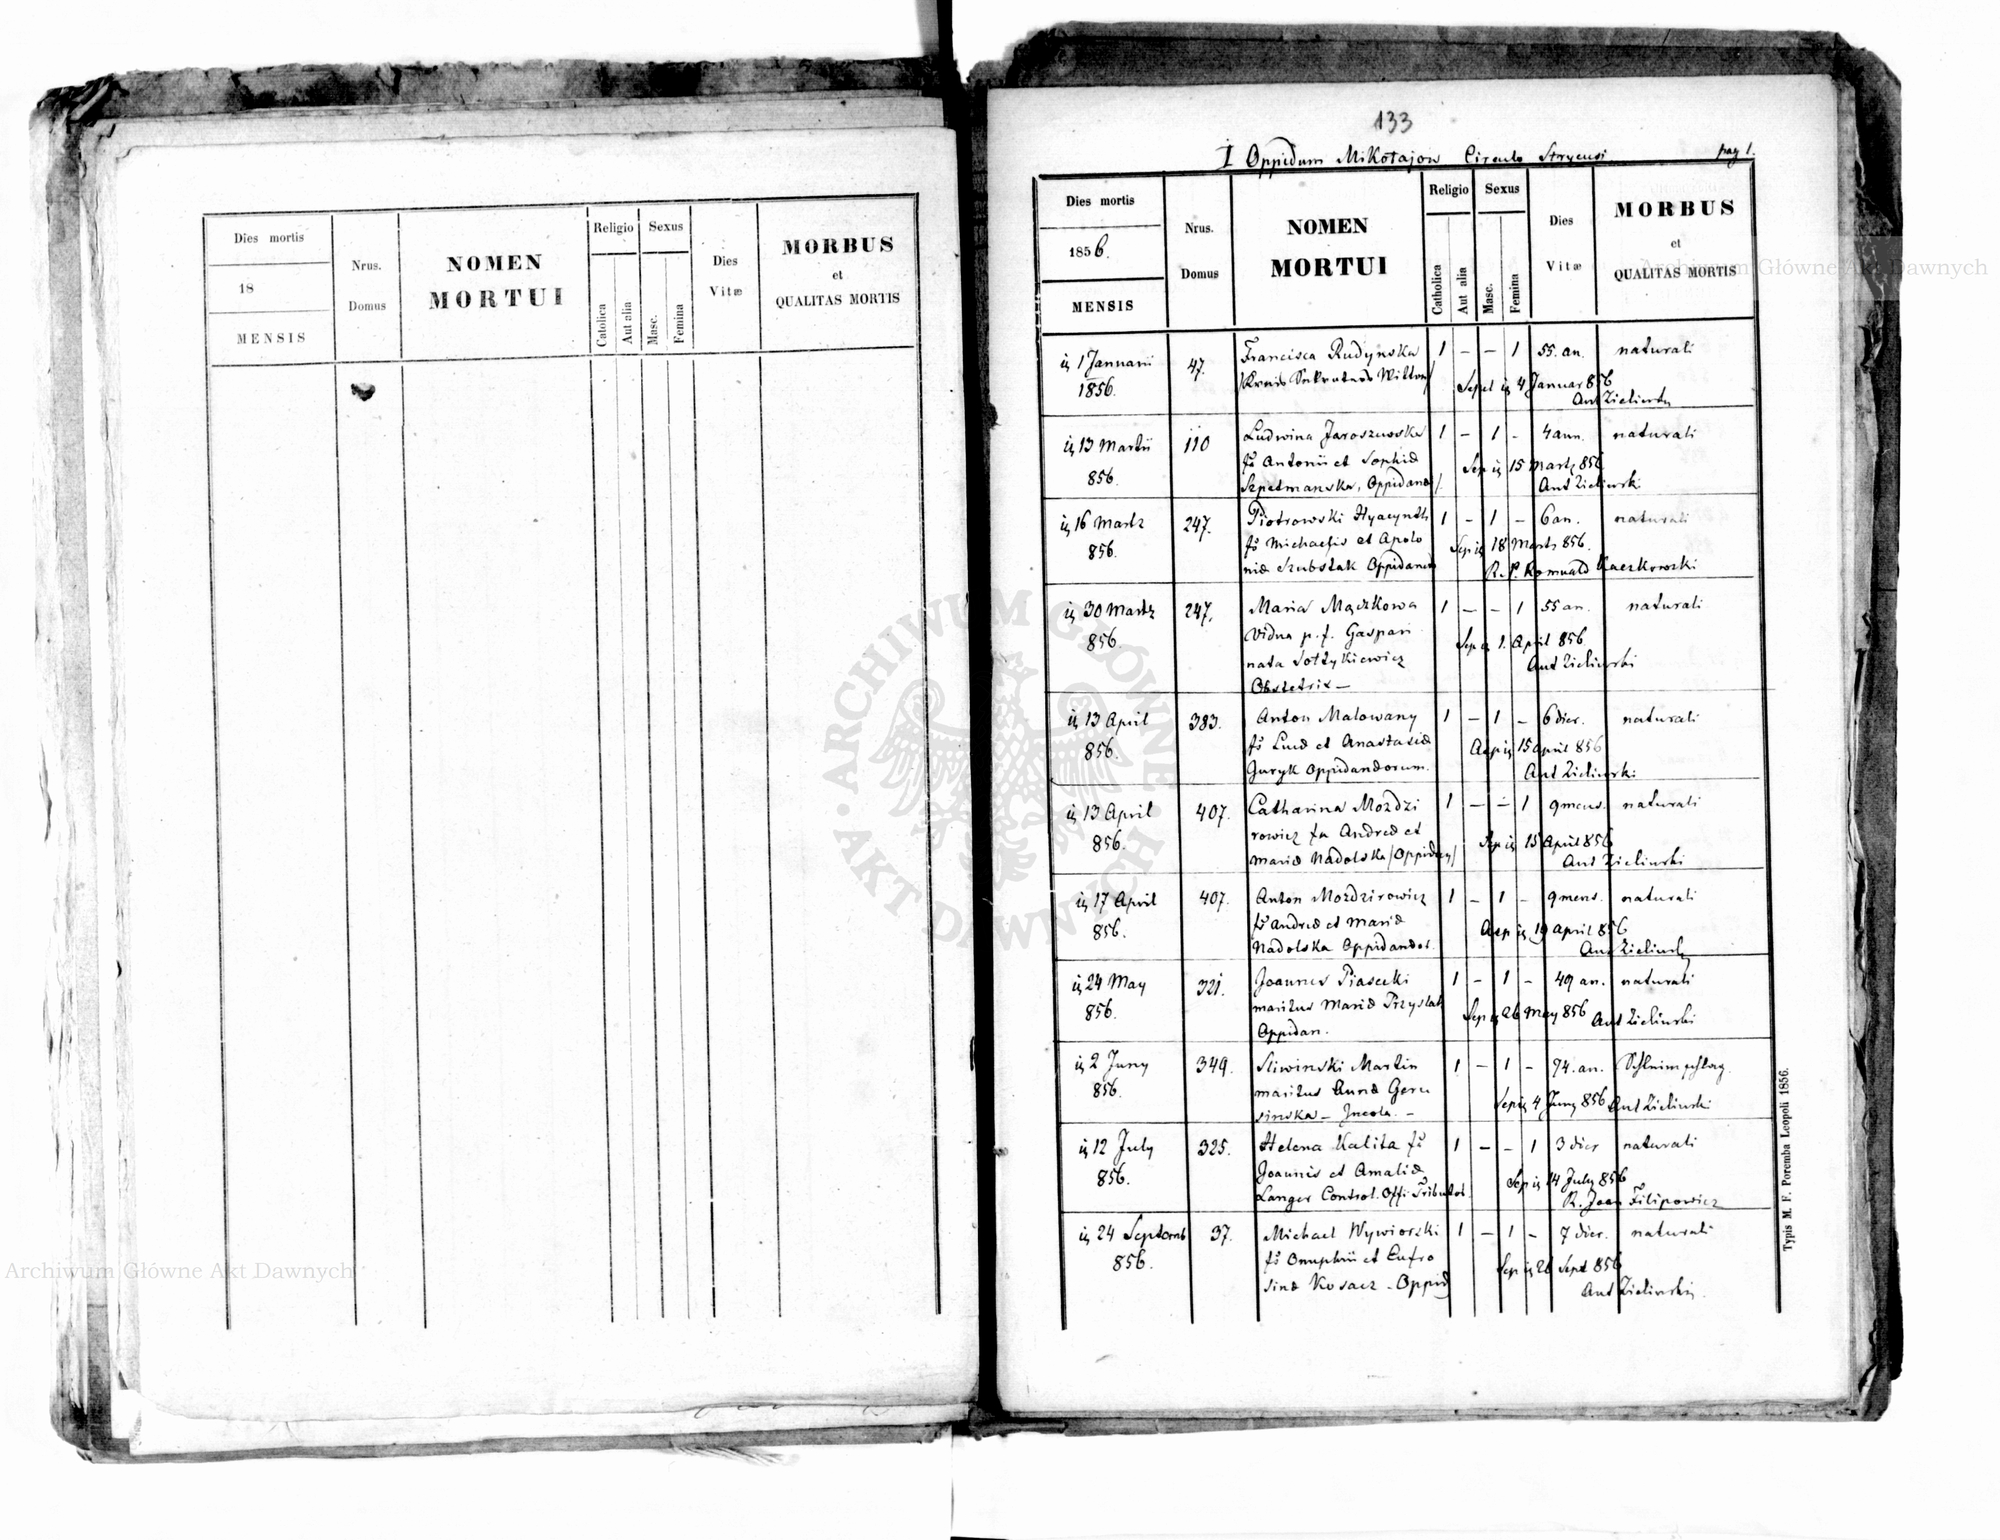 Dies mortis
18
MENSIS
Nrus.
Domus
NOMEN
MORTUI
Religio
Catolica
Aut alia
Sexus
Masc.
Femina
Dies
Vitæ
MORBUS
et
QUALITAS MORTIS
133
I Oppidum Mikołajow Circulo Stryensi pag 1.
Dies mortis
1856.
MENSIS
Nrus.
Domus
NOMEN
MORTUI
Religio
Catholica
Aut alia
Sexus
Masc.
Femina
Dies
Vitæ
MORBUS
et
QUALITAS MORTIS
1 Januarii 47. Francisca Rudynska 1 – – 1 55. an. naturali
1856. 4 Januar 856
Ant Zielinski
13 Martii 110 Ludwina Jaroszewska 1 – 1 – 4 ann. naturali
Antonii et Sophiæ Sep 15 Martz 856
856. Szpetmanska, Oppidanor Ant Zielinski
16 Martz 247. Piotrowski Hyacynth 1 – 1 – 6 an. naturali
856. Michaelis et Apolo Sep 18 Martz 856.
niæ Szubstak Oppidanor R. P. Romuald Kaczkowski
30 Martz 247. Maria Mączkowa 1 – – 1 55 an. naturali
856. Vidua p. f. Gaspari Sep 1. April 856
nata Sołtykiewicz Ant Zielinski
Obstetrix –
13 April 383. Anton Malowany 1 – 1 – 6 dier. naturali
856. Lucæ et Anastasiæ 15 April 856
Guryk Oppidandorum. Ant Zielinski
13 April 407. Catharina Mozdzi 1 – – 1 9 mens. naturali
856. rowicz fa Andreæ et Sep 15 April 856
Mariæ Nadolska Ant Zielinski
17 April 407. Anton Mozdzirowicz 1 – 1 – 9 mens. naturali
856. Andreæ et Mariæ 19 April 856
Nadolska Oppidandor. Ant Zielinski
24 May 321. Joannes Piasecki 1 – 1 – 49 an. naturali
856. maritus Mariæ Przystak Sep 26 May 856 Ant Zielinski
Oppidan.
2 Juny 349. Sliwinski Martin 1 – 1 – 74. an. Schleimschlag.
856. maritus Annæ Geru Sep 4 Juny 856 Ant Zielinski
sinska – Incola. –
12 July 325. Helena Kalita 1 – – 1 3 dier naturali
856. Joannis et Amaliæ Sep 14 July 856
Langer Control. Offi Tributor. R. Joan Filipowicz
24 Septemb 37. Michael Wywiorski 1 – 1 – 7 dier. naturali
856. Onuphrii et Eufro Sep 26 Sept 856
sinæ Kosacz – Oppid Ant Zielinski
Typis M. F. Poremba Leopoli 1856.
ARCHIWUM GŁÓWNE AKT DAWNYCH
Archiwum Główne Akt Dawnych
Archiwum Główne Akt Dawnych